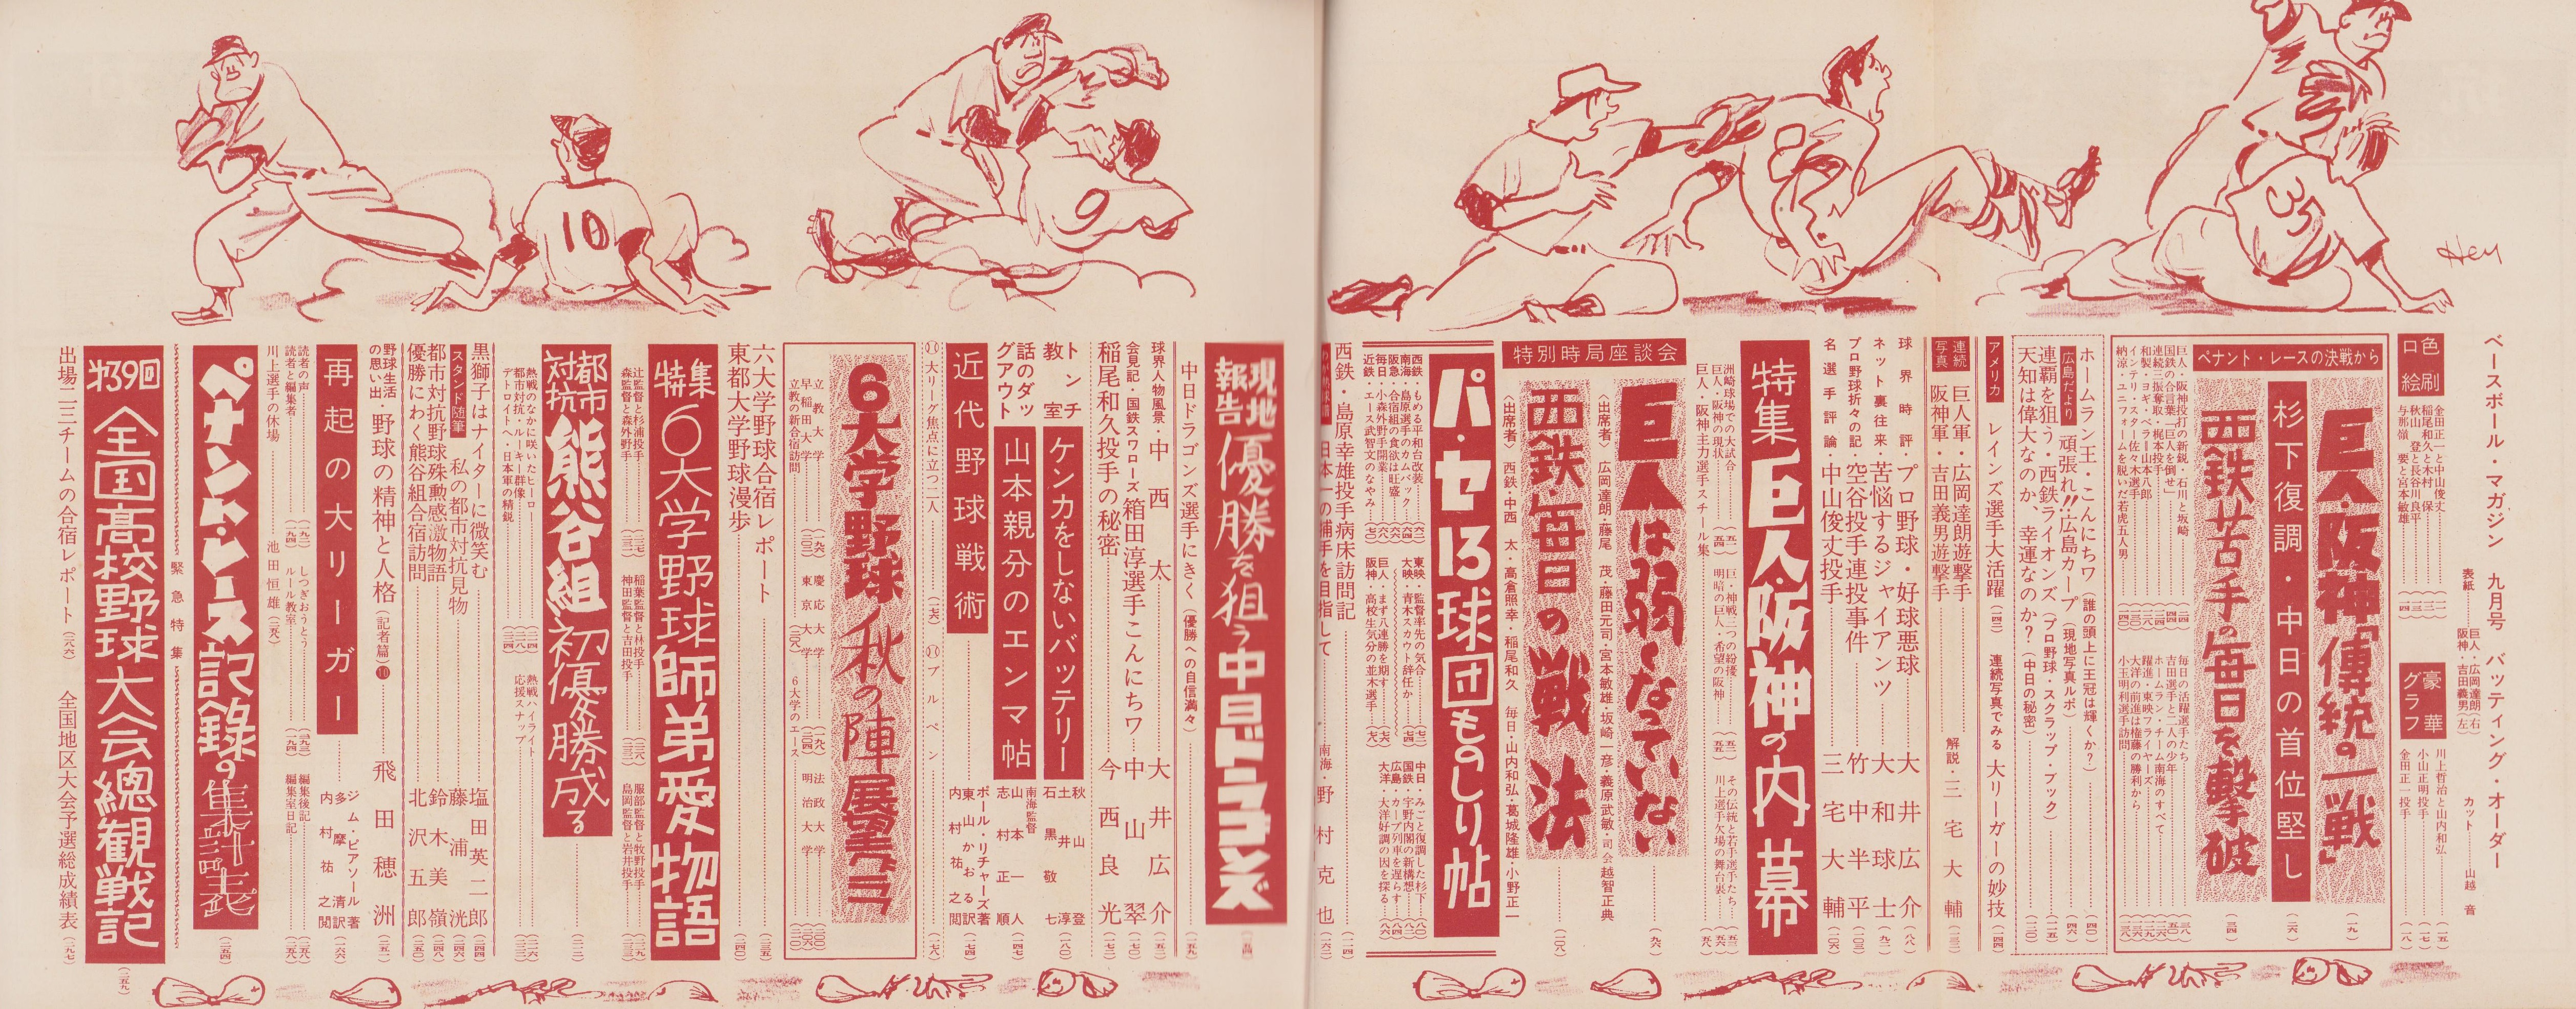 ベースボール・マガジン 九月号 バッティング・オーダー
表紙 巨人・広岡達朗(右) 阪神・吉田義男(左)
カット 山越 音
色刷口絵
金田正一と中山俊丈
稲尾和久と木村 保
秋山 登と長谷川良平
与那嶺 要と宮本敏雄
豪華グラフ
川上哲治と山内和弘
小山正明投手
金田正一投手
ペナント・レースの決戦から
巨人・阪神「傳統の一戦」
杉下復調・中日の首位堅し
西鉄苦手の毎日を撃破
巨人・阪神投打の新鋭・石川と坂崎
国鉄の合言葉「巨人を倒せ」
連続三振奪取・梶本投手
和製・ヨギ・ベラー山本八郎
インテリ・スター佐々木選手
納涼・ユニフォームを脱いだ若虎五人男
毎日の活躍選手たち
吉田選手と二人の少年
ホームラン・チーム南海のすべて
躍進・東映フライヤーズ
大洋の前進は権藤の勝利から
小玉明利選手訪問
ホームラン王・こんにちワ (誰の頭上に王冠は輝くか?)
広島だより 頑張れ!!広島カープ (現地写真ルポ)
連覇を狙う・西鉄ライオンズ (プロ野球・スクラップ・ブック)
天知は偉大なのか、幸運なのか? (中日の秘密)
アメリカ レインズ選手大活躍
連続写真でみる 大リーガーの妙技
連続写真
巨人軍・広岡達朗遊撃手
阪神軍・吉田義男遊撃手
解説・三宅大輔
球界時評・プロ野球・好球悪球 大井広介
ネット裏往来・苦悩するジャイアンツ 大和球士
プロ野球折々の記・空谷投手連投事件 竹中半平
名選手評論・中山俊丈投手 三宅大輔
特集 巨人・阪神の内幕
洲崎球場での大試合
巨人・阪神の現状
巨人・阪神主力選手スチール集
巨・神戦二つの紛擾
明暗の巨人・希望の阪神
その伝統と若手選手たち
川上選手欠場の舞台裏
特別時局座談会
巨人は弱くなっていない
(出席者) 広岡達朗・藤尾 茂・藤田元司・宮本敏雄・坂崎一彦・義原武敏・司会 越智正典
西鉄・毎日の戦法
(出席者) 西鉄・中西 太・高倉照幸・稲尾和久 毎日・山内和弘・葛城隆雄・小野正一
パ・セ13球団ものしり帖
西鉄・もめる平和台改装
南海・島原選手のカムバック
阪急・合宿組の食欲は旺盛
毎日・小森外野手開業
近鉄・エース武智文のなやみ
東映・監督率先の気合
大映・青木スカウト辞任か
巨人・まず八連勝を期す
阪神・高校生気分の並木選手
中日・みごと復調した杉下
国鉄・宇野内閣の新構想
広島・カープ列車を遅らす
大洋・大洋好調の因を探る
西鉄・島原幸雄投手病床訪問記
日本一の捕手を目指して 南海・野村克也
現地報告 優勝を狙う中日ドラゴンズ
中日ドラゴンズ選手にきく (優勝への自信満々)
球界人物風景・中西 太 大井広介
会見記・国鉄スワローズ 箱田淳選手こんにちワ 中山 翠
稲尾和久投手の秘密 今西良光
トンチ教室 ケンカをしないバッテリー
秋山 登
土井 淳
石黒敬七
話のダッグアウト 山本親分のエンマ帖
南海監督 山本一人
志村正順
近代野球戦術
ポール・リチャーズ著
東山かおる訳
内村祐之閲
大リーグ焦点に立つ二人
ブルペン
6大学野球 秋の陣展望
立教大学
早稲田大学
立教の新合宿訪問
慶応大学
東京大学
6大学のエース
法政大学
明治大学
六大学野球合宿レポート
東都大学野球漫歩
特集 6大学野球師弟愛物語
辻監督と杉浦投手
森監督と森外野手
稲葉監督と林投手
神田監督と吉田投手
服部監督と牧野投手
島岡監督と岩井投手
都市対抗 熊谷組初優勝成る
熱戦のなかに咲いたヒーロー
都市対抗・ルーキー群像
デトロイトへ・日本軍の精鋭
熱戦ハイライト
応援スナップ
黒獅子はナイターに微笑む 塩田英二郎
スタンド随筆 私の都市対抗見物 藤浦 洸
都市対抗野球殊勲感激物語 鈴木美嶺
優勝にわく熊谷組合宿訪問 北沢五郎
野球生活の思い出 野球の精神と人格 (記者篇)⑩ 飛田穂洲
再起の大リーガー
ジム・ピアソール著
多摩 清訳
内村祐之閲
読者の声
読者と編集者
川上選手の休場 池田恒雄
しつぎおうとう
ルール教室
編集後記
編集室日記
ペナント・レース記録の集計表
緊急特集
第39回 全国高校野球大会總観戦記
出場二三チームの合宿レポート
全国地区大会予選総成績表
Hey
10
9
8
35